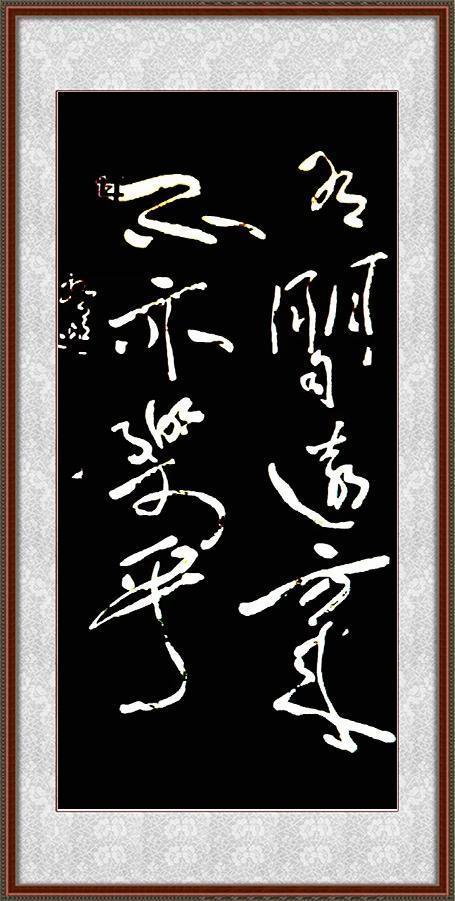 有朋自遠方來
不亦樂乎